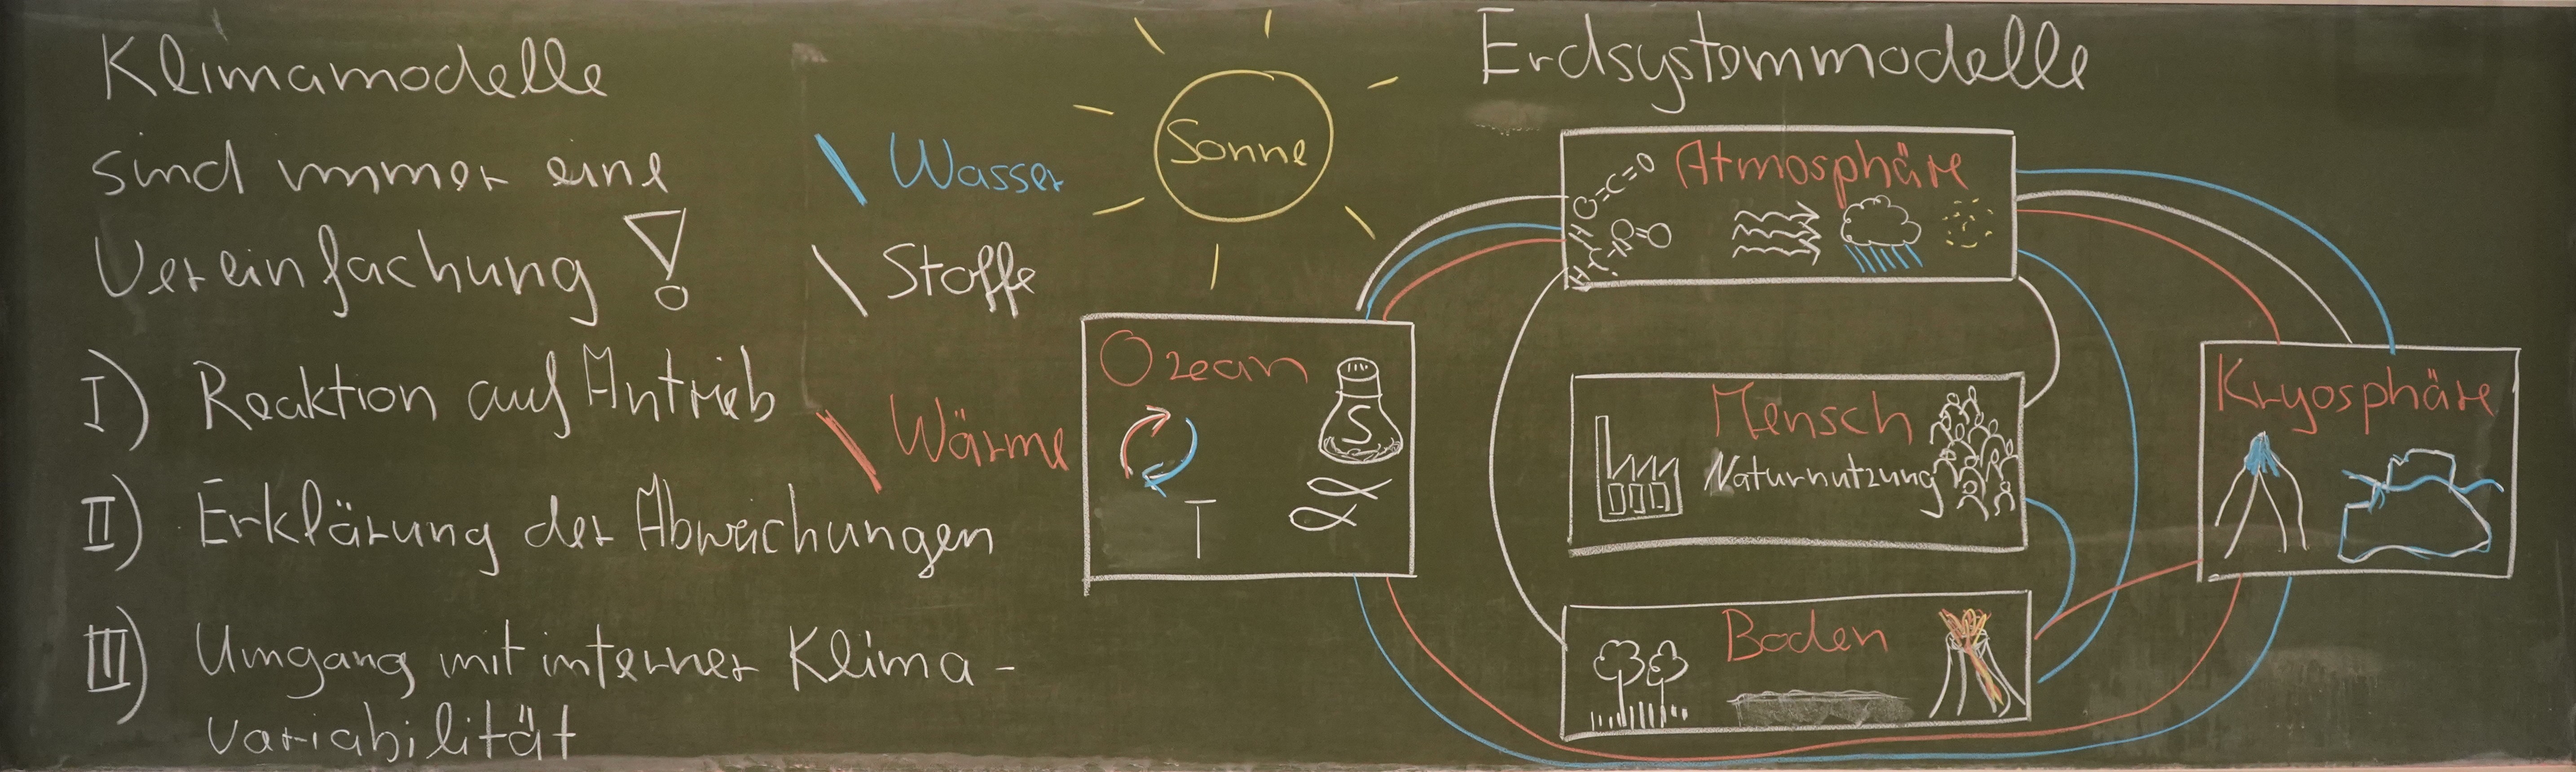 Klimamodelle
sind immer eine
Vereinfachung !
I) Reaktion auf Antrieb
II) Erklärung der Abweichungen
III) Umgang mit interner Klima-
variabilität
Wasser
Stoffe
Wärme
Sonne
Erdsystemmodelle
Atmosphäre
O=C=O
O=O
Ozean
S
T
Mensch
Naturnutzung
Boden
Kryosphäre